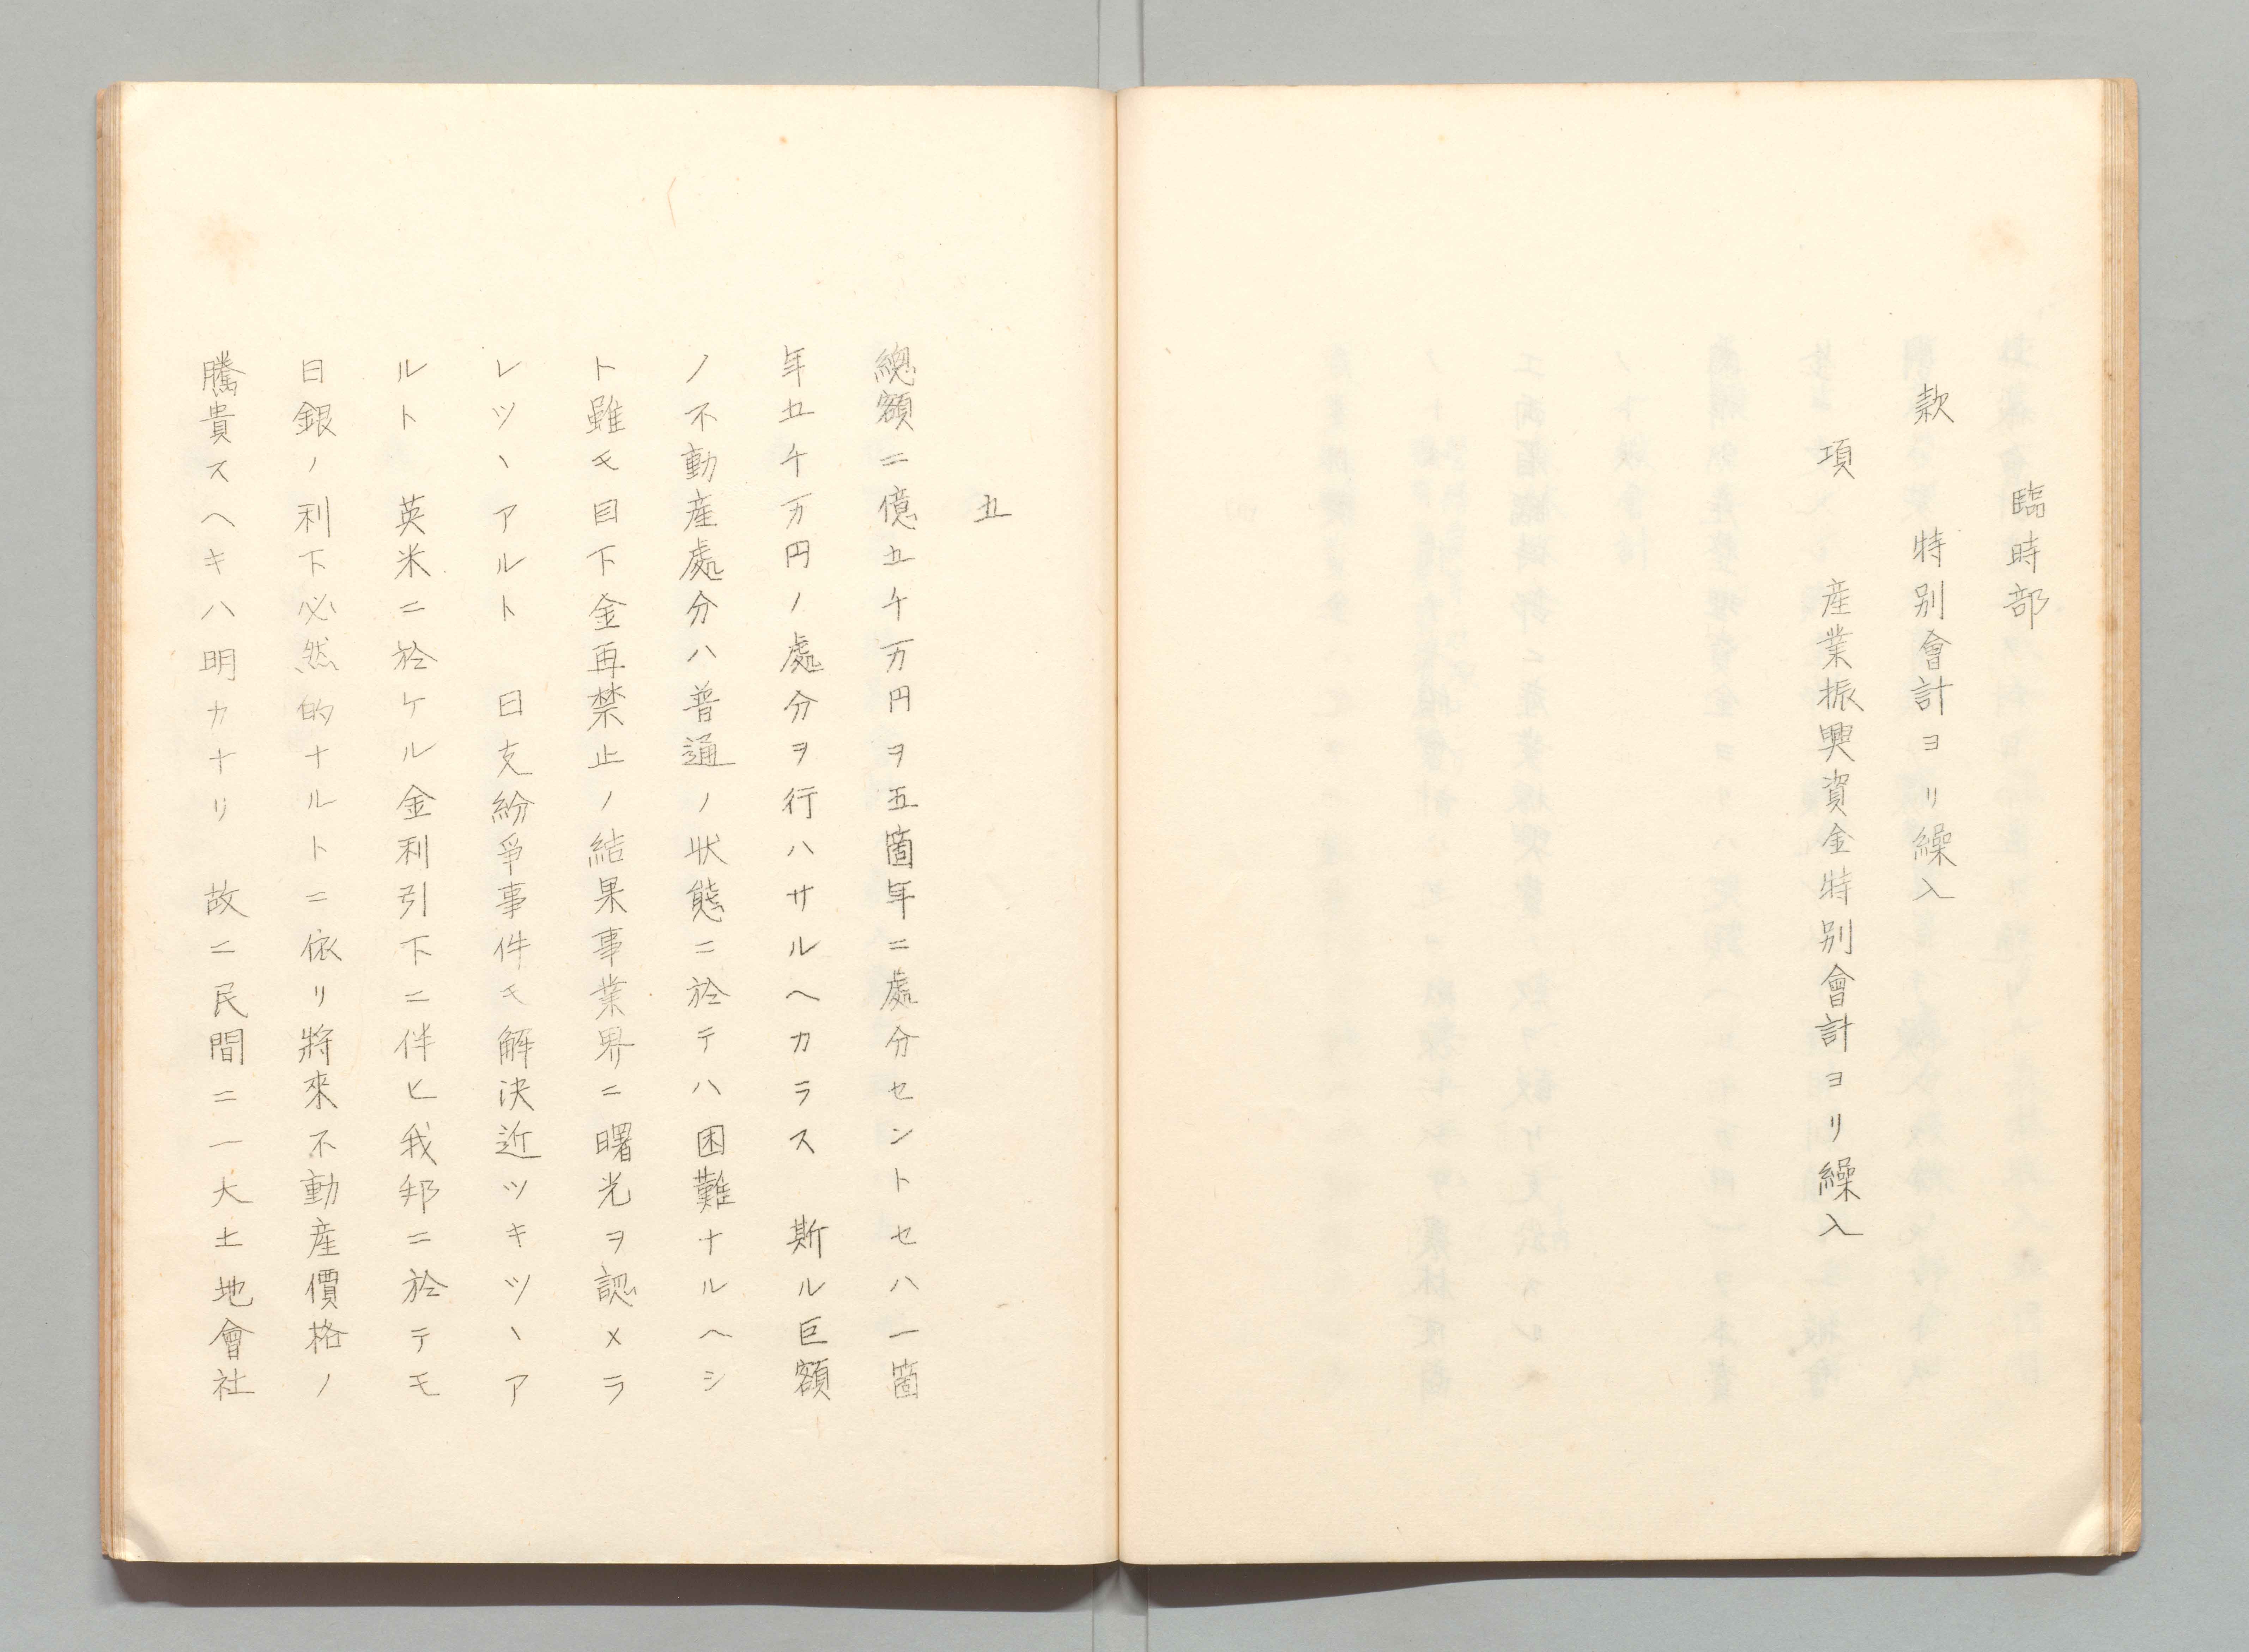 臨時部
款　特別會計ヨリ繰入
項　産業振興資金特別會計ヨリ繰入
五
總額二億五千万円ヲ五箇年ニ處分セントセハ一箇
年五千万円ノ處分ヲ行ハサルヘカラス　斯ル巨額
ノ不動産處分ハ普通ノ状態ニ於テハ困難ナルヘシ
ト雖モ目下金再禁止ノ結果事業界ニ曙光ヲ認メラ
レツヽアルト　日支紛爭事件モ解決近ツキツヽア
ルト　英米ニ於ケル金利引下ニ伴ヒ我邦ニ於テモ
日銀ノ利下必然的ナルトニ依リ將來不動産價格ノ
騰貴スヘキハ明カナリ　故ニ民間ニ一大土地會社